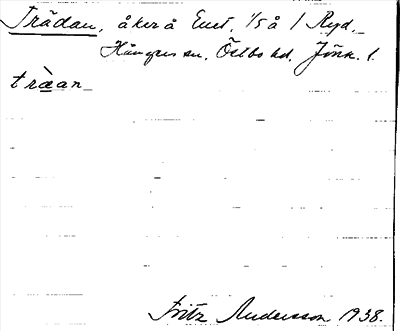 Trädan, åker å Enet, 1/5 å 1 Ryd,
Hångers sn. Östbo hd. Jönk. l.
tràan
Fritz Andersson 1938.